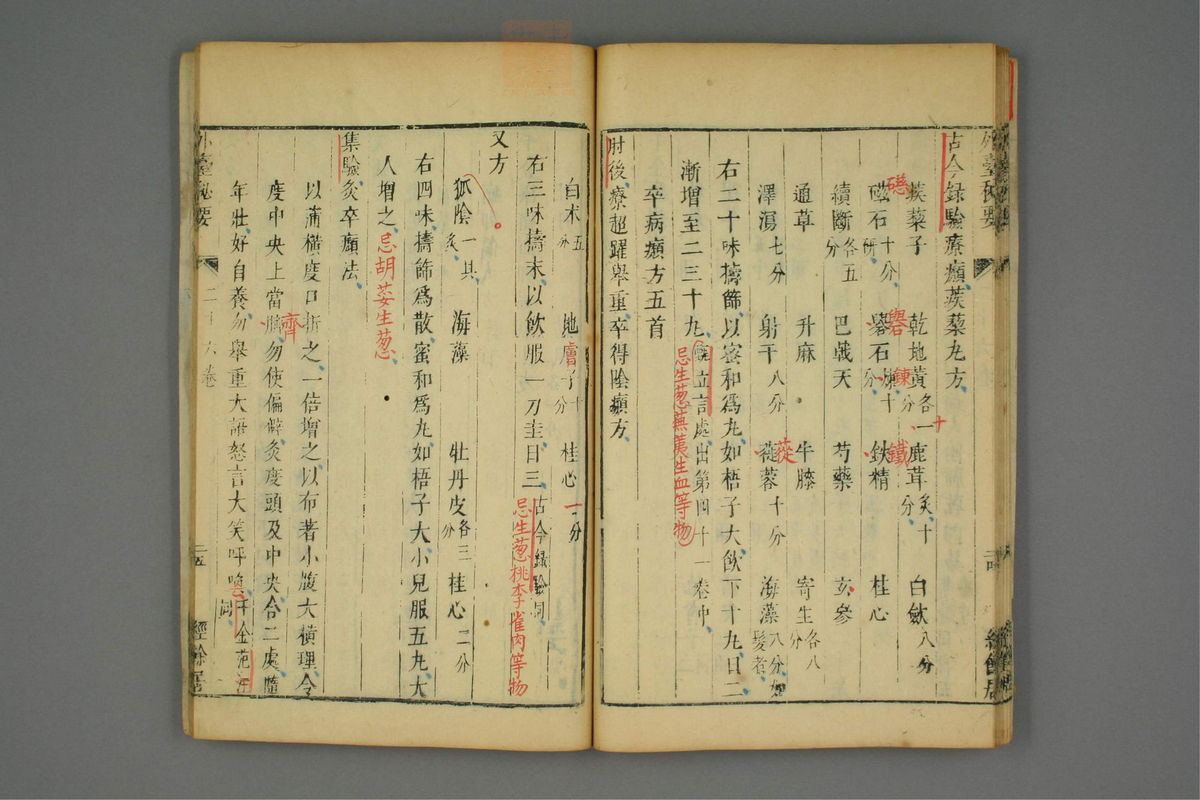 外臺秘要
古今録驗療㿗蒺藜丸方
蒺藜子 乾地黃各一分 鹿茸炙十分 白斂八分
十
磁石十分研 礜石煉十分 鉄精 桂心
礠 礜 鍊 鐵
續斷各五分 巴戟天 芍藥 玄參
通草 升麻 牛膝 寄生各八分
澤瀉七分 射干八分 蓯蓉十分 海藻八分如髮者
蓯
右二十味擣篩以蜜和爲丸如梧子大飲下十丸日二
漸增至二三十丸 立言處出第四十一卷中
忌生葱蕪荑生血等物
卒病㿗方五首
肘後療超躍舉重卒得陰㿗方
白术五分 地膚子十分 桂心一分
右三味擣末以飲服一刀圭日三古今録驗同
忌生葱桃李雀肉等物
又方
狐陰一具炙 海藻 牡丹皮各三分 桂心二分
右四味擣篩爲散蜜和爲丸如梧子大小兒服五丸大
人增之
忌胡荽生葱
集驗灸卒㿗法
以蒲橫度口折之一倍增之以布著小腹大橫理令
度中央上當臍勿使偏僻灸度頭及中央合二處隨
齊
年壯好自養勿舉重大語怒言大笑呼喚千金范汪同
外臺秘要
二十六卷
經餘居